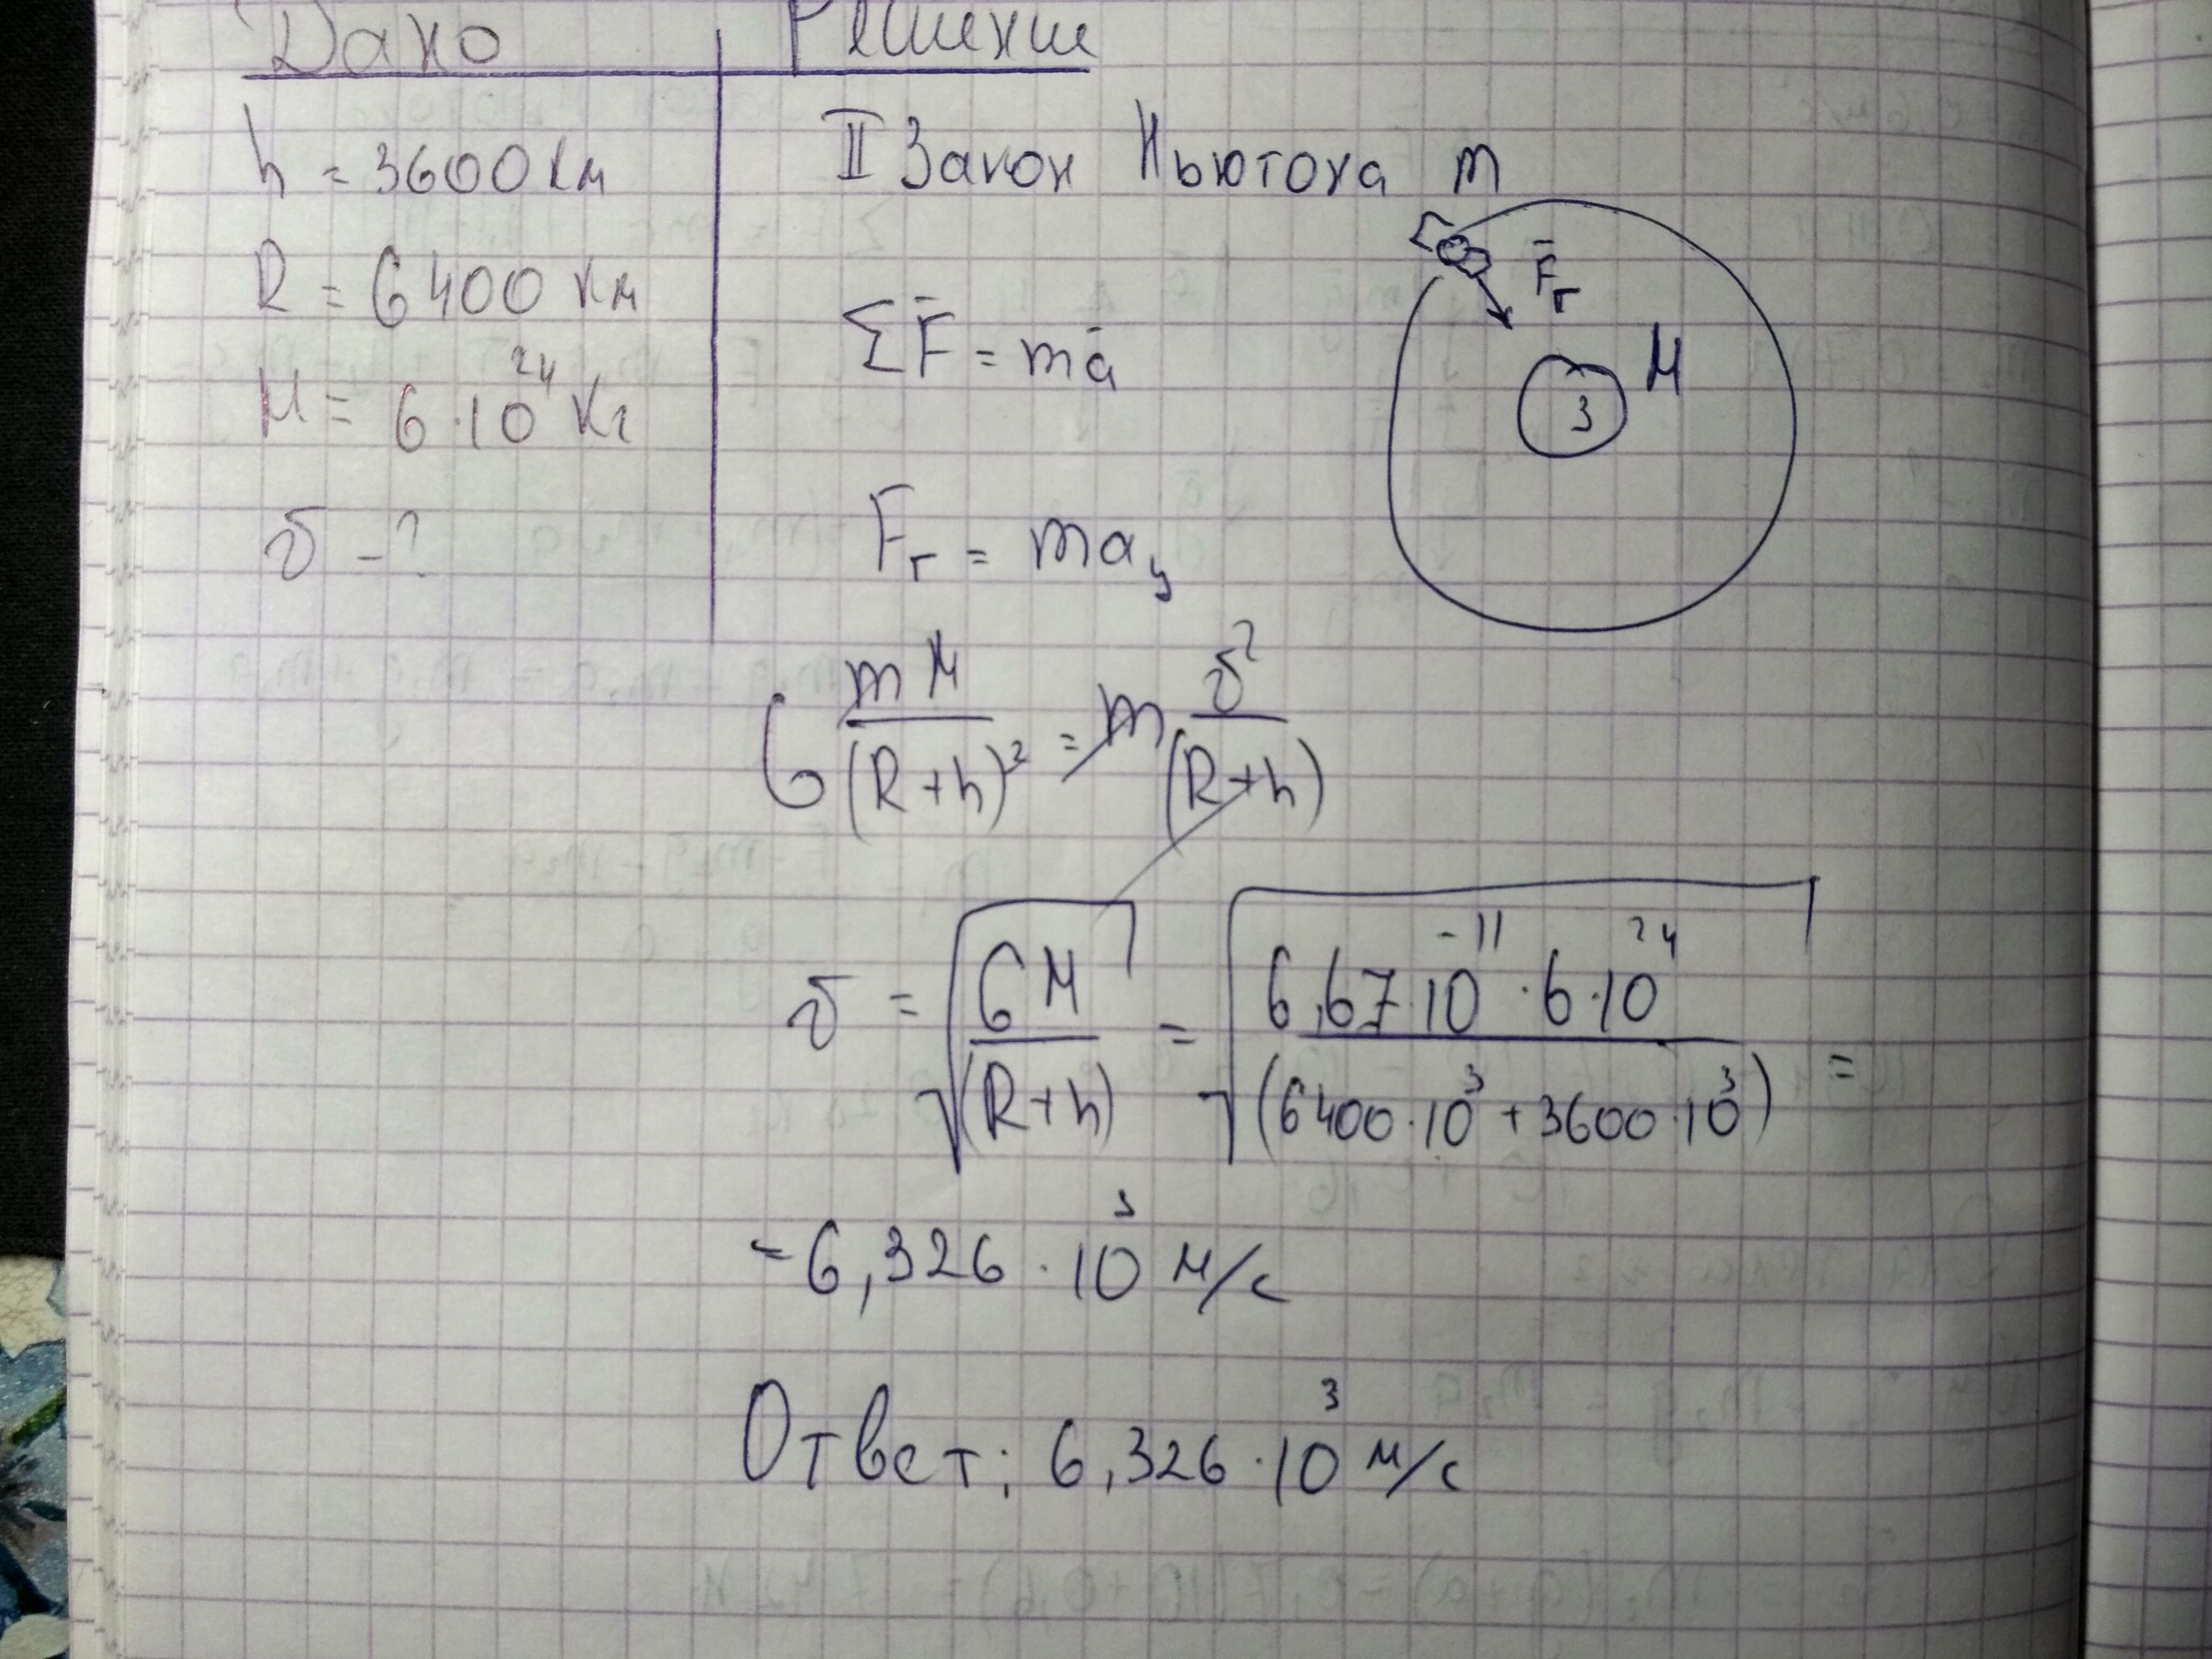 Дано
Решение
h = 3600 км
R = 6400 км
M = 6·10²⁴ кг
υ - ?
II Закон Ньютона
m
F̄г
M
З
ΣF̄ = mā
Fг = maц
G mM/(R+h)² = m υ²/(R+h)
υ = √(GM/(R+h)) = √(6,67·10⁻¹¹·6·10²⁴/(6400·10³+3600·10³)) =
= 6,326·10³ м/с
Ответ: 6,326·10³ м/с